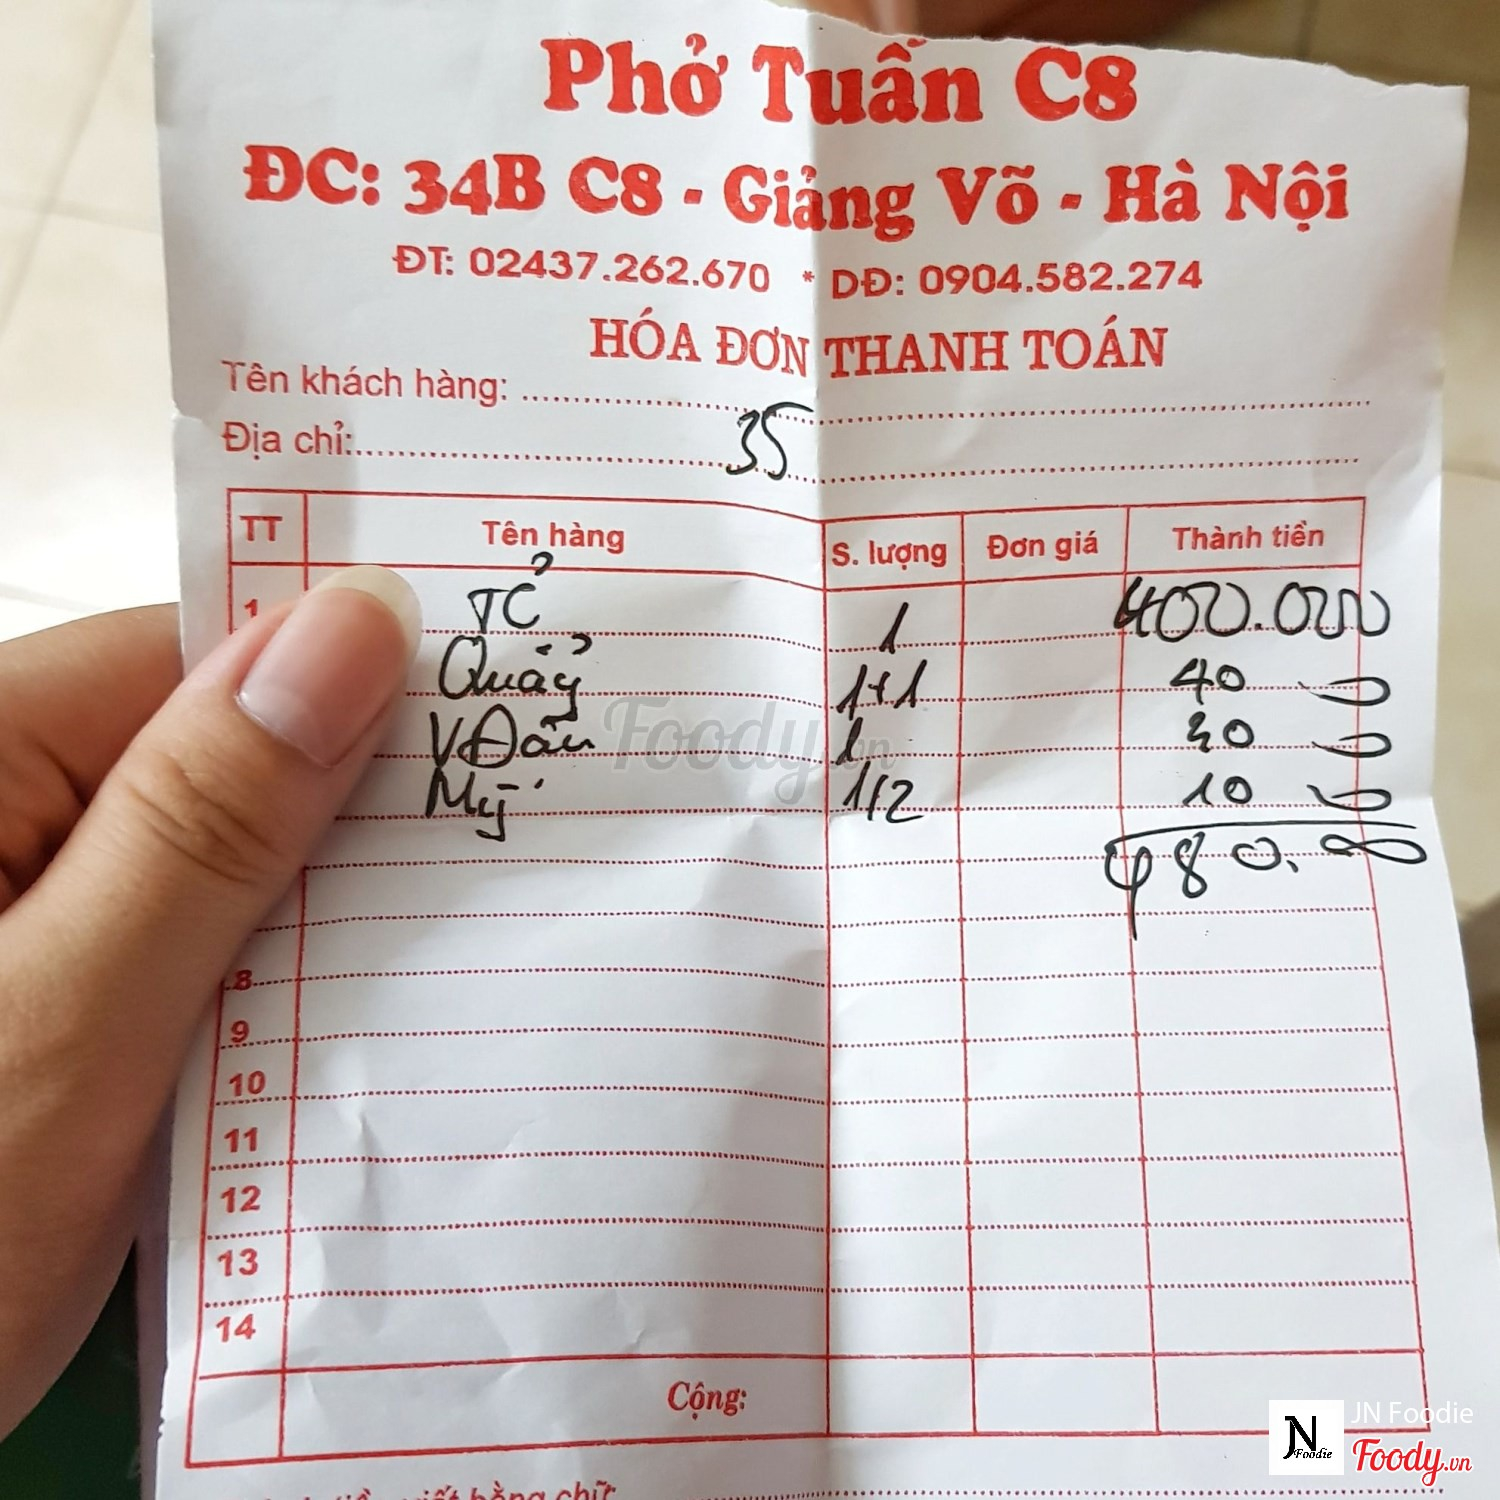 Phở Tuấn C8
ĐC: 34B C8 - Giảng Võ - Hà Nội
ĐT: 02437.262.670 * DĐ: 0904.582.274
HÓA ĐƠN THANH TOÁN
Tên khách hàng:
Địa chỉ: 35
TT Tên hàng S. lượng Đơn giá Thành tiền
1 TỎ 1 400.000
Quẩy 1+1 40
VĐầu 1 30
Mỳ 1/2 10
480.
8
9
10
11
12
13
14
Cộng:
tiền viết bằng chữ
Foody.vn
JN Foodie
JN Foodie
Foody.vn